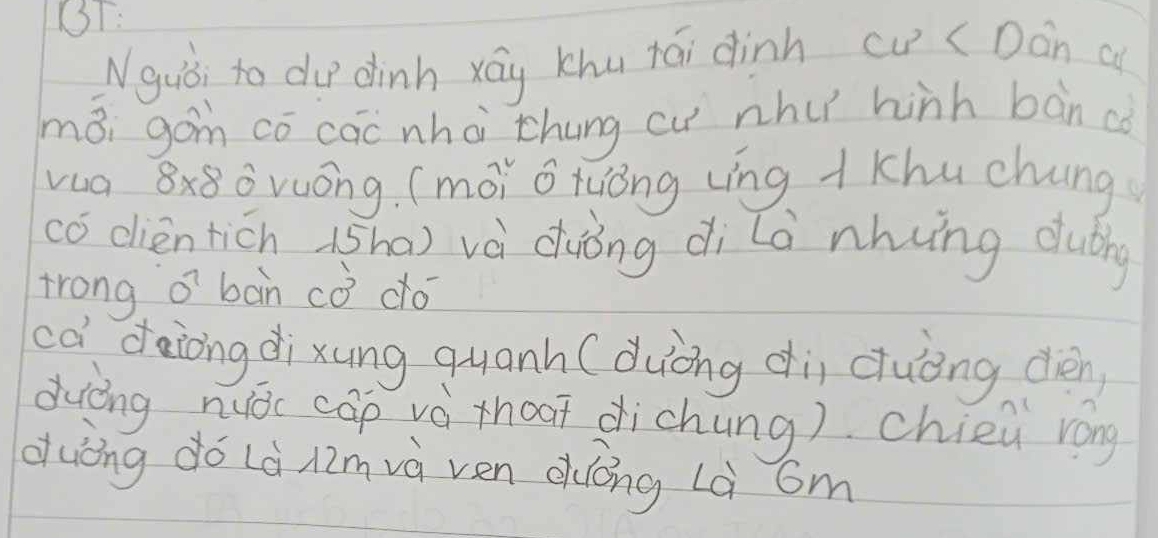 BT:
Người ta dự định xây khu tái định cư < Dân cư
mới gồm có các nhà chung cư như hình bàn cờ
vua 8x8 ô vuông. (mỗi ô tương ứng 1 khu chung
có diện tích 15ha) và đường đi là những đường
trong ô bàn cờ đó
cả đường đi xung quanh (đường đi, đường điện,
đường nước cấp và thoát đi chung). Chiều rộng
đường đó là 12m và ven đường là 6m